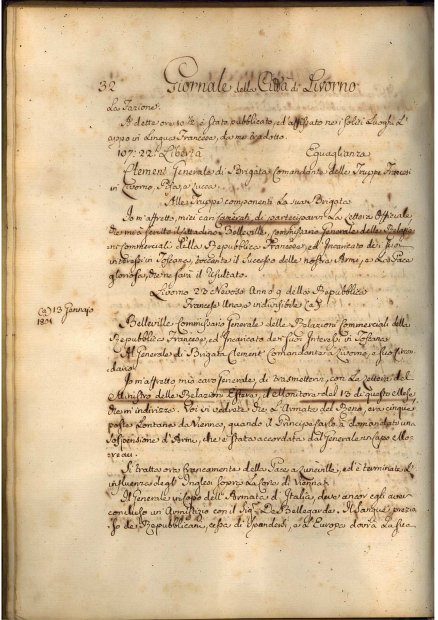 32 Giornale della Città di Livorno
la Fazione.
A dette ore 10½ è stato pubblicato, ed affissato nei soliti Luoghi l'
appo in Lingua Francese, che ora tradotto.
107: 22: Libertà Eguaglianza
Clement Generale di Brigata Comandante delle Truppe Francesi
in Livorno, Pisa, e Lucca.
Alle Truppe componenti la sua Brigata
Io m'affretto, miei cari Camerati di parteciparvi la Lettera Officiale
che mi à scritto il Cittadino Belleville, Commissario Generale delle Relazio
ni Commerciali della Repubblica Francese, ed Incaricato dei suoi
interessi in Toscana, toccante il successo delle nostre Armi, e la Pace
gloriosa, che ne sarà il resultato.
Livorno 23 Nevoso Anno 9 della Repubblica
Francese Una, e indivisibile (a)
(a) 13 Gennajo
1801
Belleville Commissario Generale delle Relazioni Commerciali della
Repubblica Francese, ed Incaricato dei suoi Interessi in Toscana
Al Generale di Brigata Clement Comandante a Livorno, e suo
Io m'affretto mio caro Generale, di trasmettervi, con la Lettera del
Ministro delle Relazioni Estere, il Monitore del 13 di questo Mese,
che m'indirizza. Voi vi vedrete che l'Armata del Reno, era cinque
poste lontana da Vienna, quando il Principe Carlo à domandato una
sospensione d'Armi, che è stata accordata dal Generale in Capo Mo
reau.
Si tratta ora francamente della Pace a Luneville, ed è terminata l'
influenza degli Inglesi sopra la Corte di Vienna.
Il Generale in Capo dell'Armata d'Italia, deve ancor egli aver
concluso un Armistizio con il Sig. De Bellegarde. Il sangue prezio
so de Repubblicani, cessa di spandersi, e l'Europa dovrà la sua